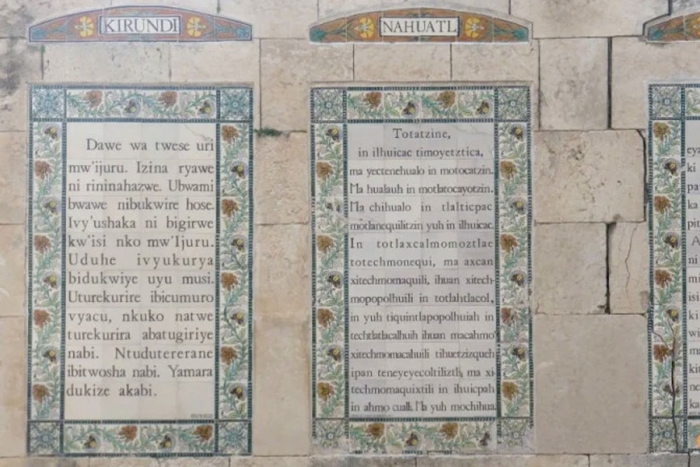 KIRUNDI
Dawe wa twese uri
mw'ijuru. Izina ryawe
ni rininahazwe. Ubwami
bwawe nibukwire hose.
Ivy'ushaka ni bigirwe
kw'isi nko mw'Ijuru.
Uduhe ivyukurya
bidukwiye uyu musi.
Uturekurire ibicumuro
vyacu, nkuko natwe
turekurira abatugiriye
nabi. Ntudutererane
ibitwosha nabi. Yamara
dukize akabi.
NAHUATL
Totatzine,
in ilhuicac timoyetztica,
ma yectenehualo in motocatzin.
Ma hualauh in motlatocayotzin.
Ma chihualo in tlalticpac
motlanequilitzin yuh in ilhuicac.
In totlaxcalmomoztlae
totechmonequi, ma axcan
xitechmomaquili, ihuan xitech-
mopopolhuili in totlahtlacol,
in yuh tiquintlapopolhuiah in
techtlatlacalhuih ihuan macahmo
xitechmomacahuili tihuetzizqueh
ipan teneyeyecoltiliztli, ma xi-
techmomaquixtili in ihuicpah
in ahmo cualli. Ma yuh mochihua.